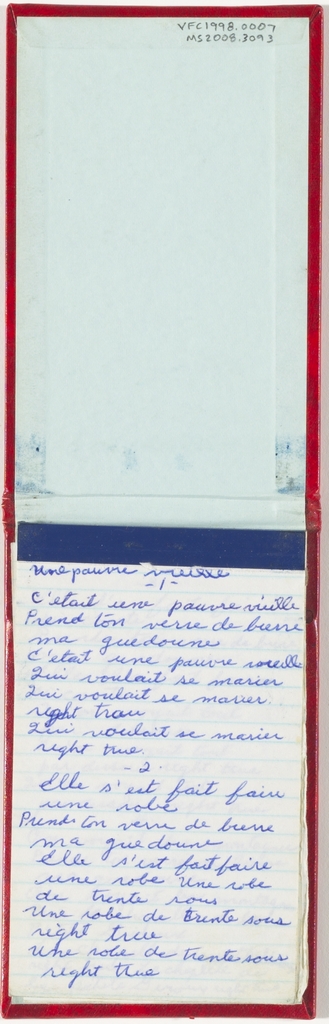 VFC1998.0007
MS2008.3093
Une pauvre vieille
-1-
C'était une pauvre vieille
Prend ton verre de bierre
ma guedoune
C'était une pauvre vieille
Qui voulait se marier
Qui voulait se marier.
right trau
Qui voulait se marier
right true.
-2-
Elle s'est fait faire
une robe
Prends ton verre de bierre
ma guedoune
Elle s'est fait faire
une robe Une robe
de trente sous
Une robe de trente sous
right true
Une robe de trente sous
right true